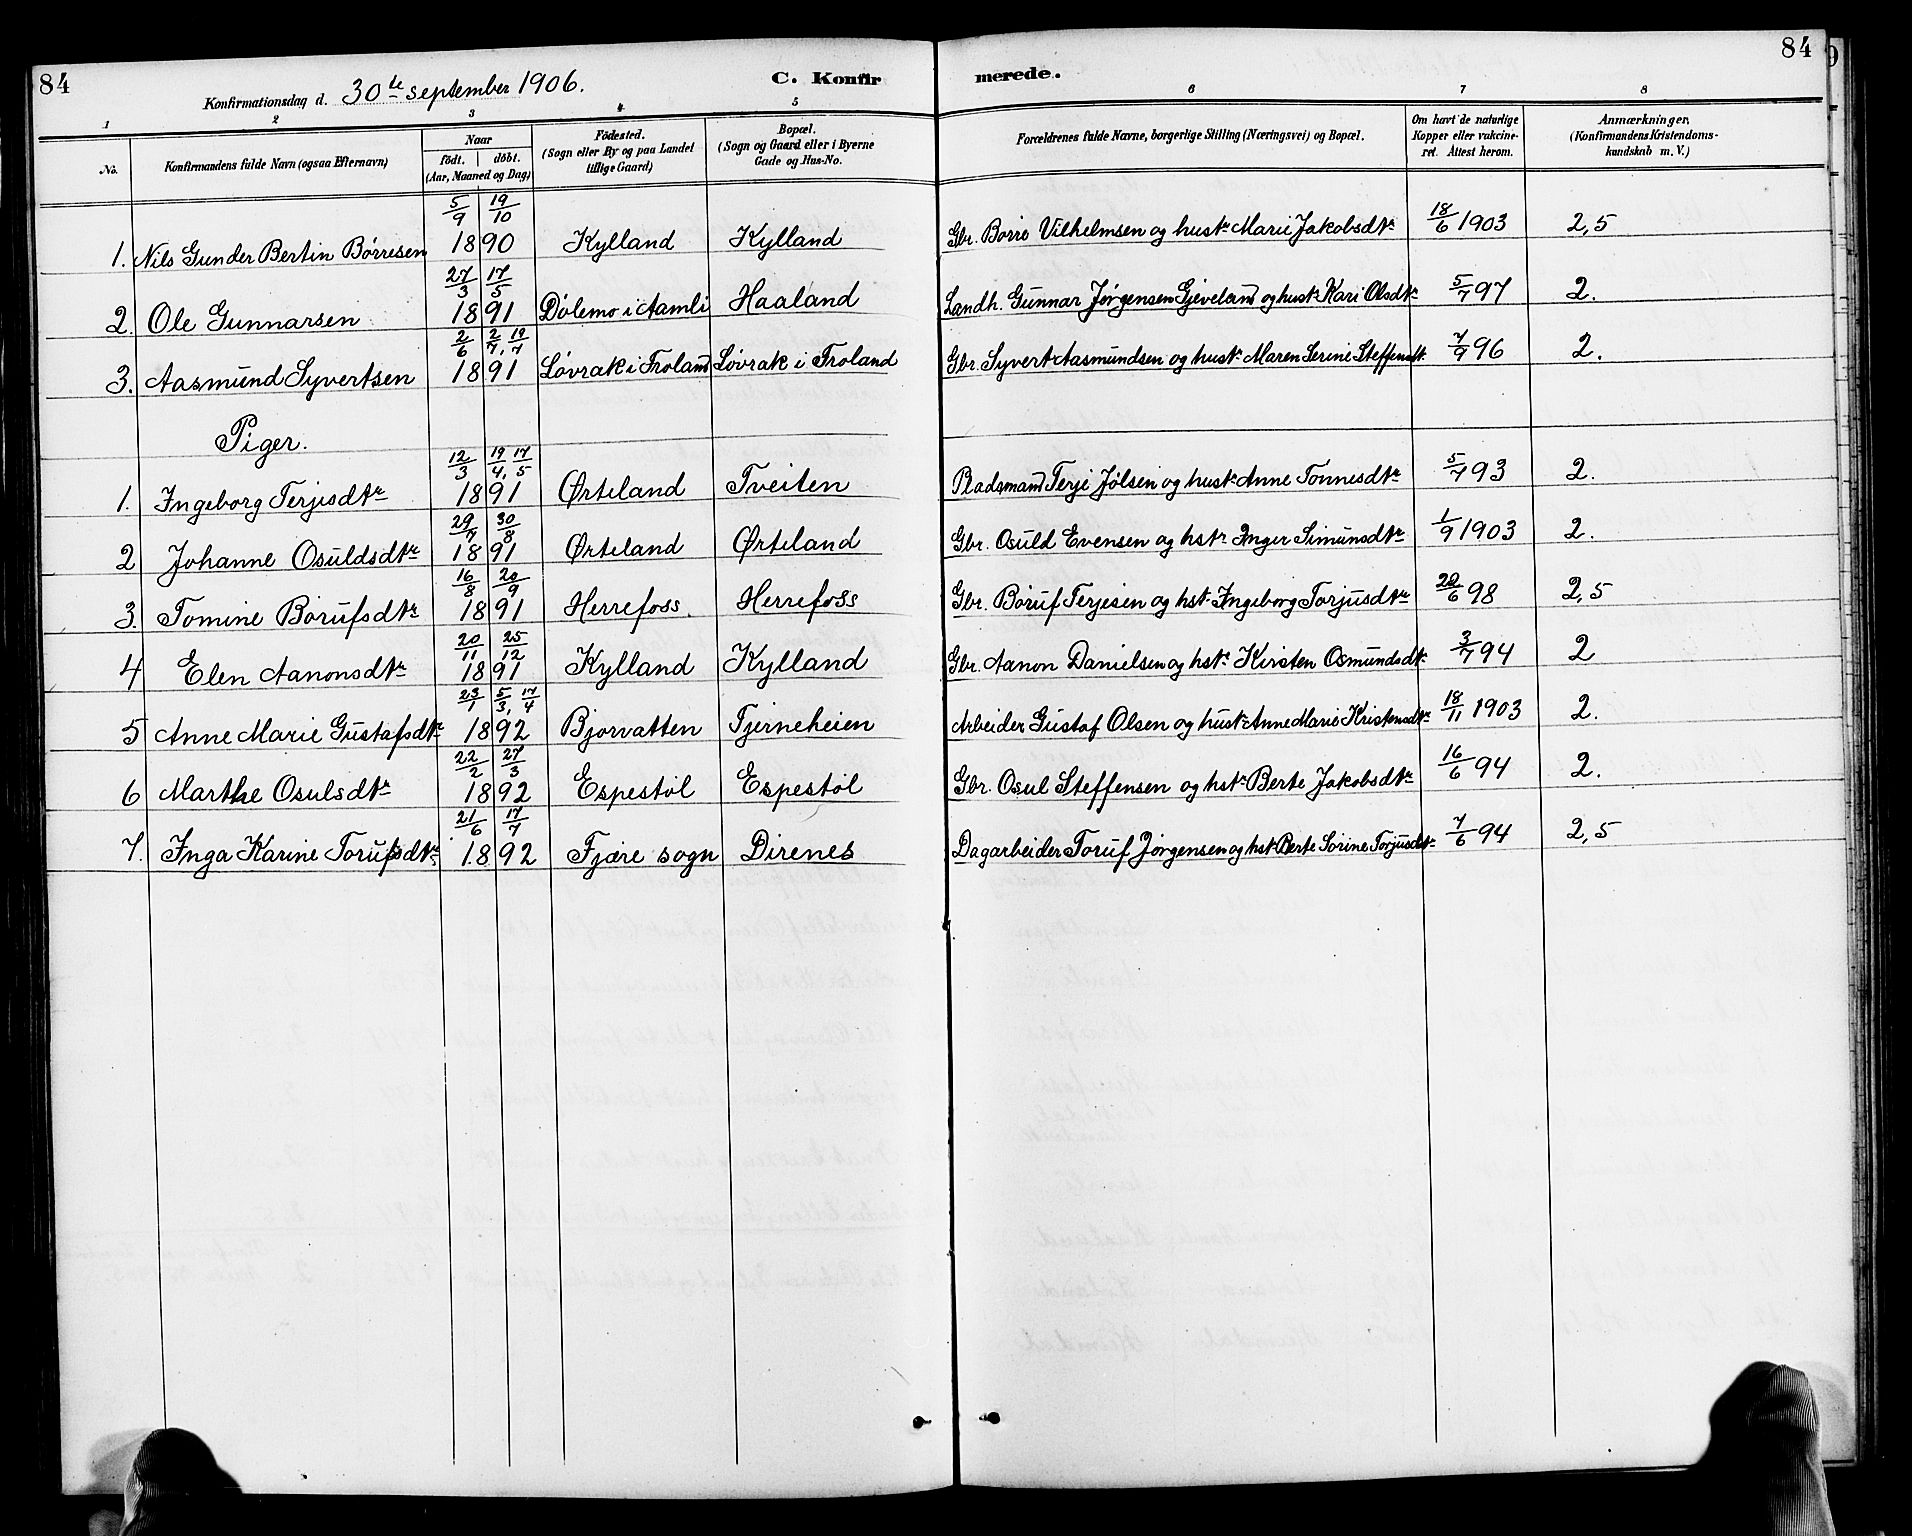 84
Konfirmationsdag d. 30te september 1906. C. Konfirmerede. 84
1 2 3 4 5 6 7 8
No. Konfirmandens fulde Navn (ogsaa Efternavn) Naar födt. döbt. (Aar, Maaned og Dag) Födested. (Sogn eller By og paa Landet tillige Gaard) Bopæl. (Sogn og Gaard eller i Byerne Gade og Hus-No. Forældrenes fulde Navne, borgerlige Stilling (Næringsvei) og Bopæl. Om havt de naturlige Kopper eller vakcineret. Attest herom. Anmærkninger. (Konfirmandens Kristendomskundskab m. V.)
1. Nils Gunder Bertin Børresen 5/9 19/10 1890 Kylland Kylland Gbr. Børre Vilhelmsen og hustr Marie Jakobsdtr 18/6 1903 2,5
2. Ole Gunnarsen 27/3 17/5 1891 Dølemo i Aamli Haaland Landh. Gunnar Jørgensen Gjeveland og hustr Kari Olsdtr 5/7 97 2.
3. Aasmund Syvertsen 2/6 2/7, 19/7 1891 Løvrak i Froland Løvrak i Froland Gbr. Syvert Aasmundsen og hustr Maren Serine Steffensdt. 7/9 96 2.
Piger.
1. Ingeborg Terjesdtr 12/3 19/4, 17/5 1891 Ørteland Tveiten Pladsmand Terje Jølsen og hustr Anne Tonnesdtr 5/7 93 2.
2 Johanne Osuldsdtr 29/7 30/8 1891 Ørteland Ørteland Gbr. Osuld Evensen og hstr Inger Simunsdtr 1/9 1903 2.
3. Tomine Børufsdtr 16/8 20/9 1891 Herrefoss. Herrefoss Gbr. Børuf Terjesen og hstr Ingeborg Torjusdtr 22/6 98 2,5
4 Elen Aanonsdtr 20/11 25/12 1891 Kylland Kylland Gbr. Aanon Danielsen og hstr Kirsten Osmundsdtr 3/7 94 2
5 Anne Marie Gustafsdtr 23/1 5/3, 17/4 1892 Bjorvatten Tjerneheien Arbeider Gustaf Olsen og hustr Anne Marie Kristensdtr 18/11 1903 2.
6 Marthe Osulsdtr 22/2 27/3 1892 Espestøl Espestøl Gbr. Osul Steffensen og hstr Berte Jakobsdtr 16/6 94 2.
7. Inga Karine Torufsdtr 21/6 17/7 1892 Fjære sogn Direnes Dagarbeider Toruf Jørgensen og hstr Berte Sorine Torjusdtr 7/6 94 2,5